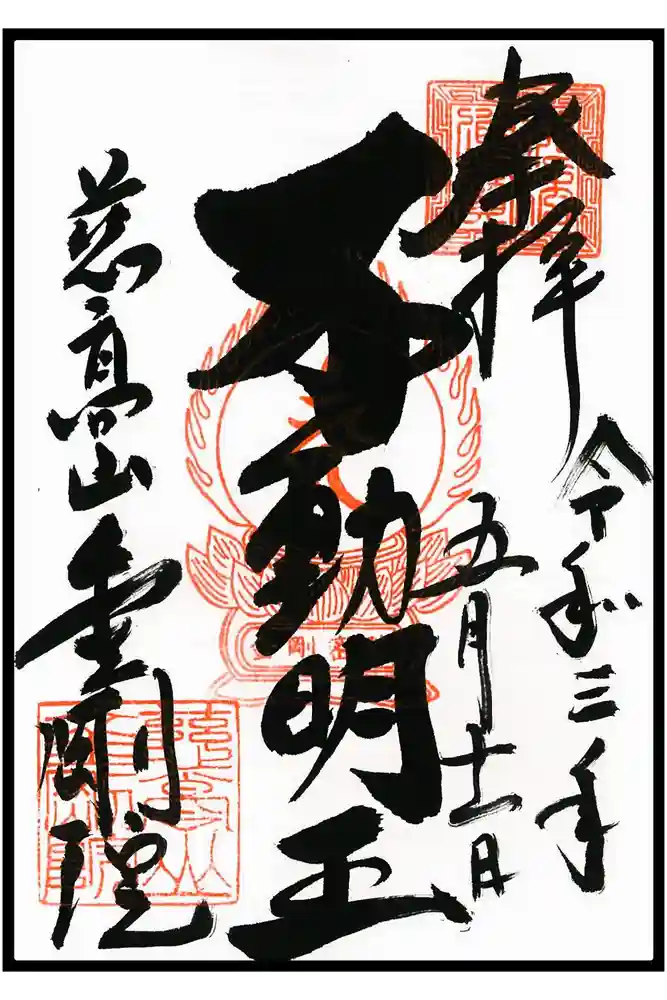 奉拝
令和三年
五月十一日
不動明王
慈高山
金剛院